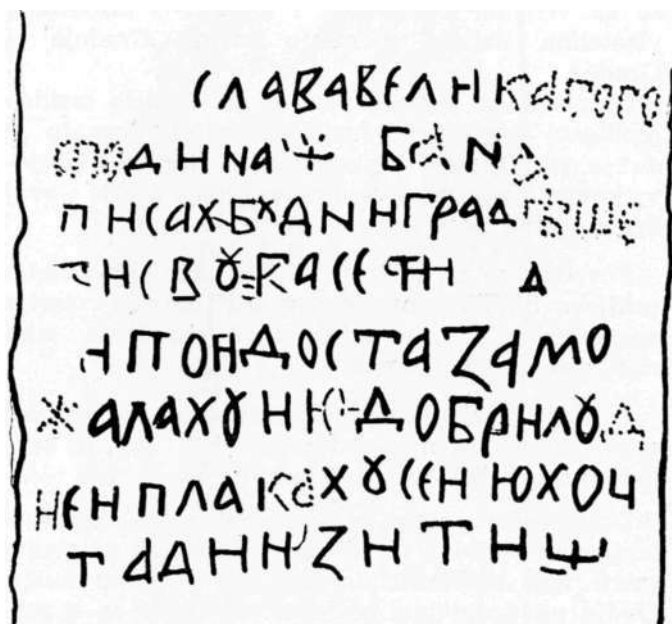 СЛАВАВЕЛИКАГОГО
СПОДИNАѰ БАNА
ПИСАХБХДNИГРАДГѢШЕ
ТИСВȢКАСЕТИ Д
ИПОИДОСТАZАМО
ЖАЛАХȢИЮДОБРИЛȢД
ИЕИПЛАКАХȢСЕИЮХОЧ
ТАДИИZИТИЩ